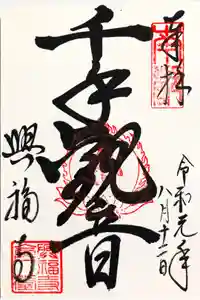 奉拝
令和元年
八月十二日
千手観音
興福寺